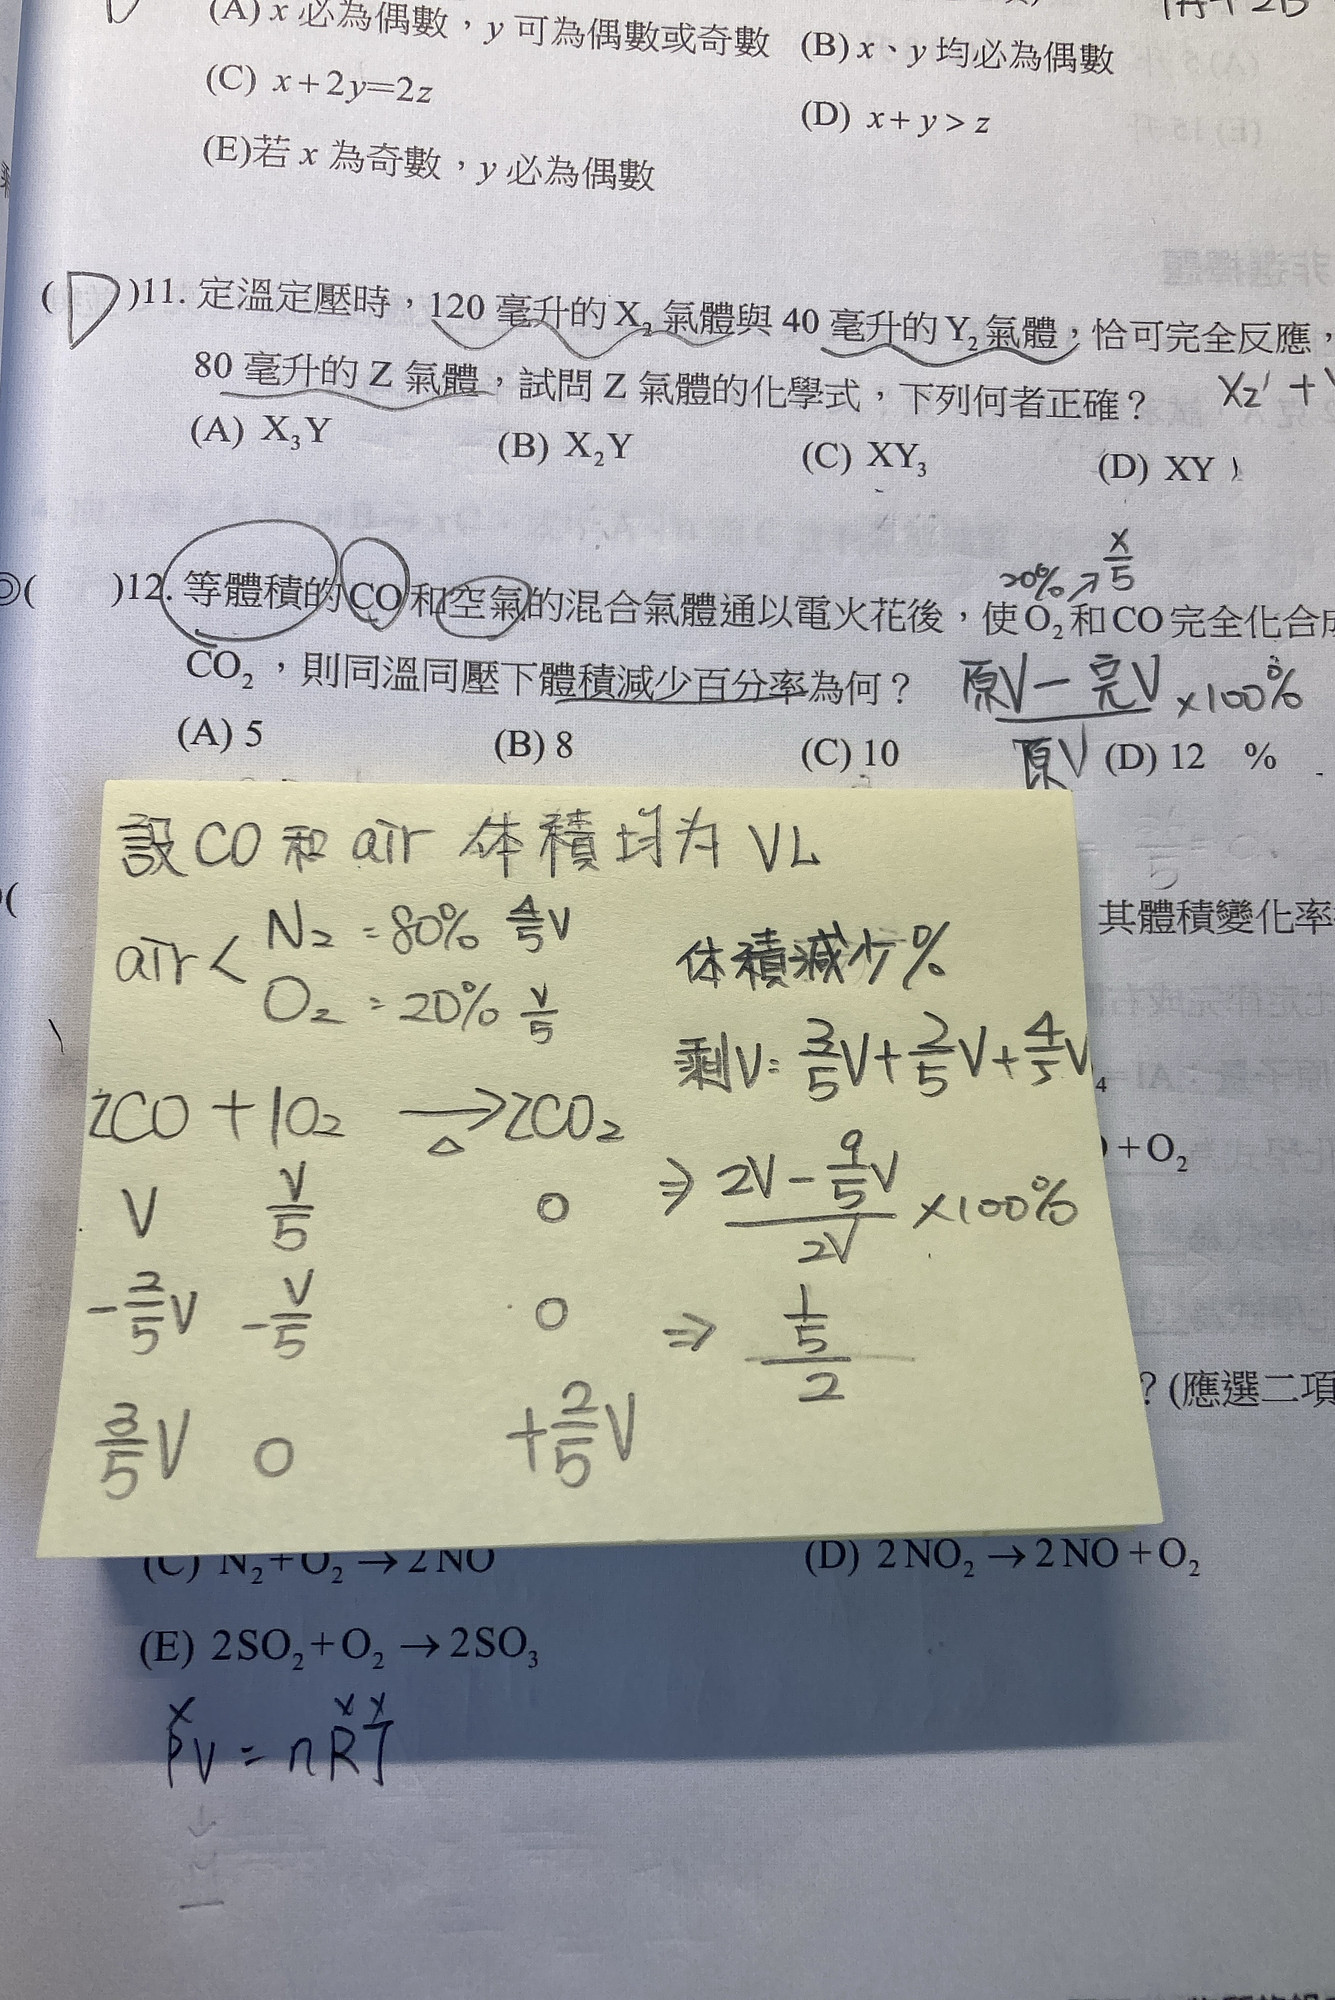 (A) x 必為偶數，y 可為偶數或奇數 (B) x、y 均必為偶數
(C) x+2y=2z
(D) x+y>z
(E)若 x 為奇數，y 必為偶數
(D)11. 定溫定壓時，120 毫升的 X₂ 氣體與 40 毫升的 Y₂ 氣體，恰可完全反應，
80 毫升的 Z 氣體，試問 Z 氣體的化學式，下列何者正確？
(A) X₃Y (B) X₂Y (C) XY₃ (D) XY
20% ↗ x/5
◎( )12. 等體積的 CO 和空氣的混合氣體通以電火花後，使 O₂ 和 CO 完全化合
CO₂，則同溫同壓下體積減少百分率為何？
原V－完V / 原V ×100%
(A) 5 (B) 8 (C) 10 (D) 12 %
設 CO 和 air 体積均為 VL
air < N₂ = 80% 4/5 V
O₂ = 20% V/5
2CO + 1O₂ →△ 2CO₂
V V/5 0
-2/5 V -V/5 0
3/5 V 0 +2/5 V
体積減少%
剩V: 3/5 V + 2/5 V + 4/5 V
⇒ 2V - 9/5 V / 2V ×100%
⇒ 1/5 / 2
其體積變化率
+O₂
? (應選二項
(C) N₂+O₂ → 2NO (D) 2NO₂ → 2NO+O₂
(E) 2SO₂+O₂ → 2SO₃
PV = nRT